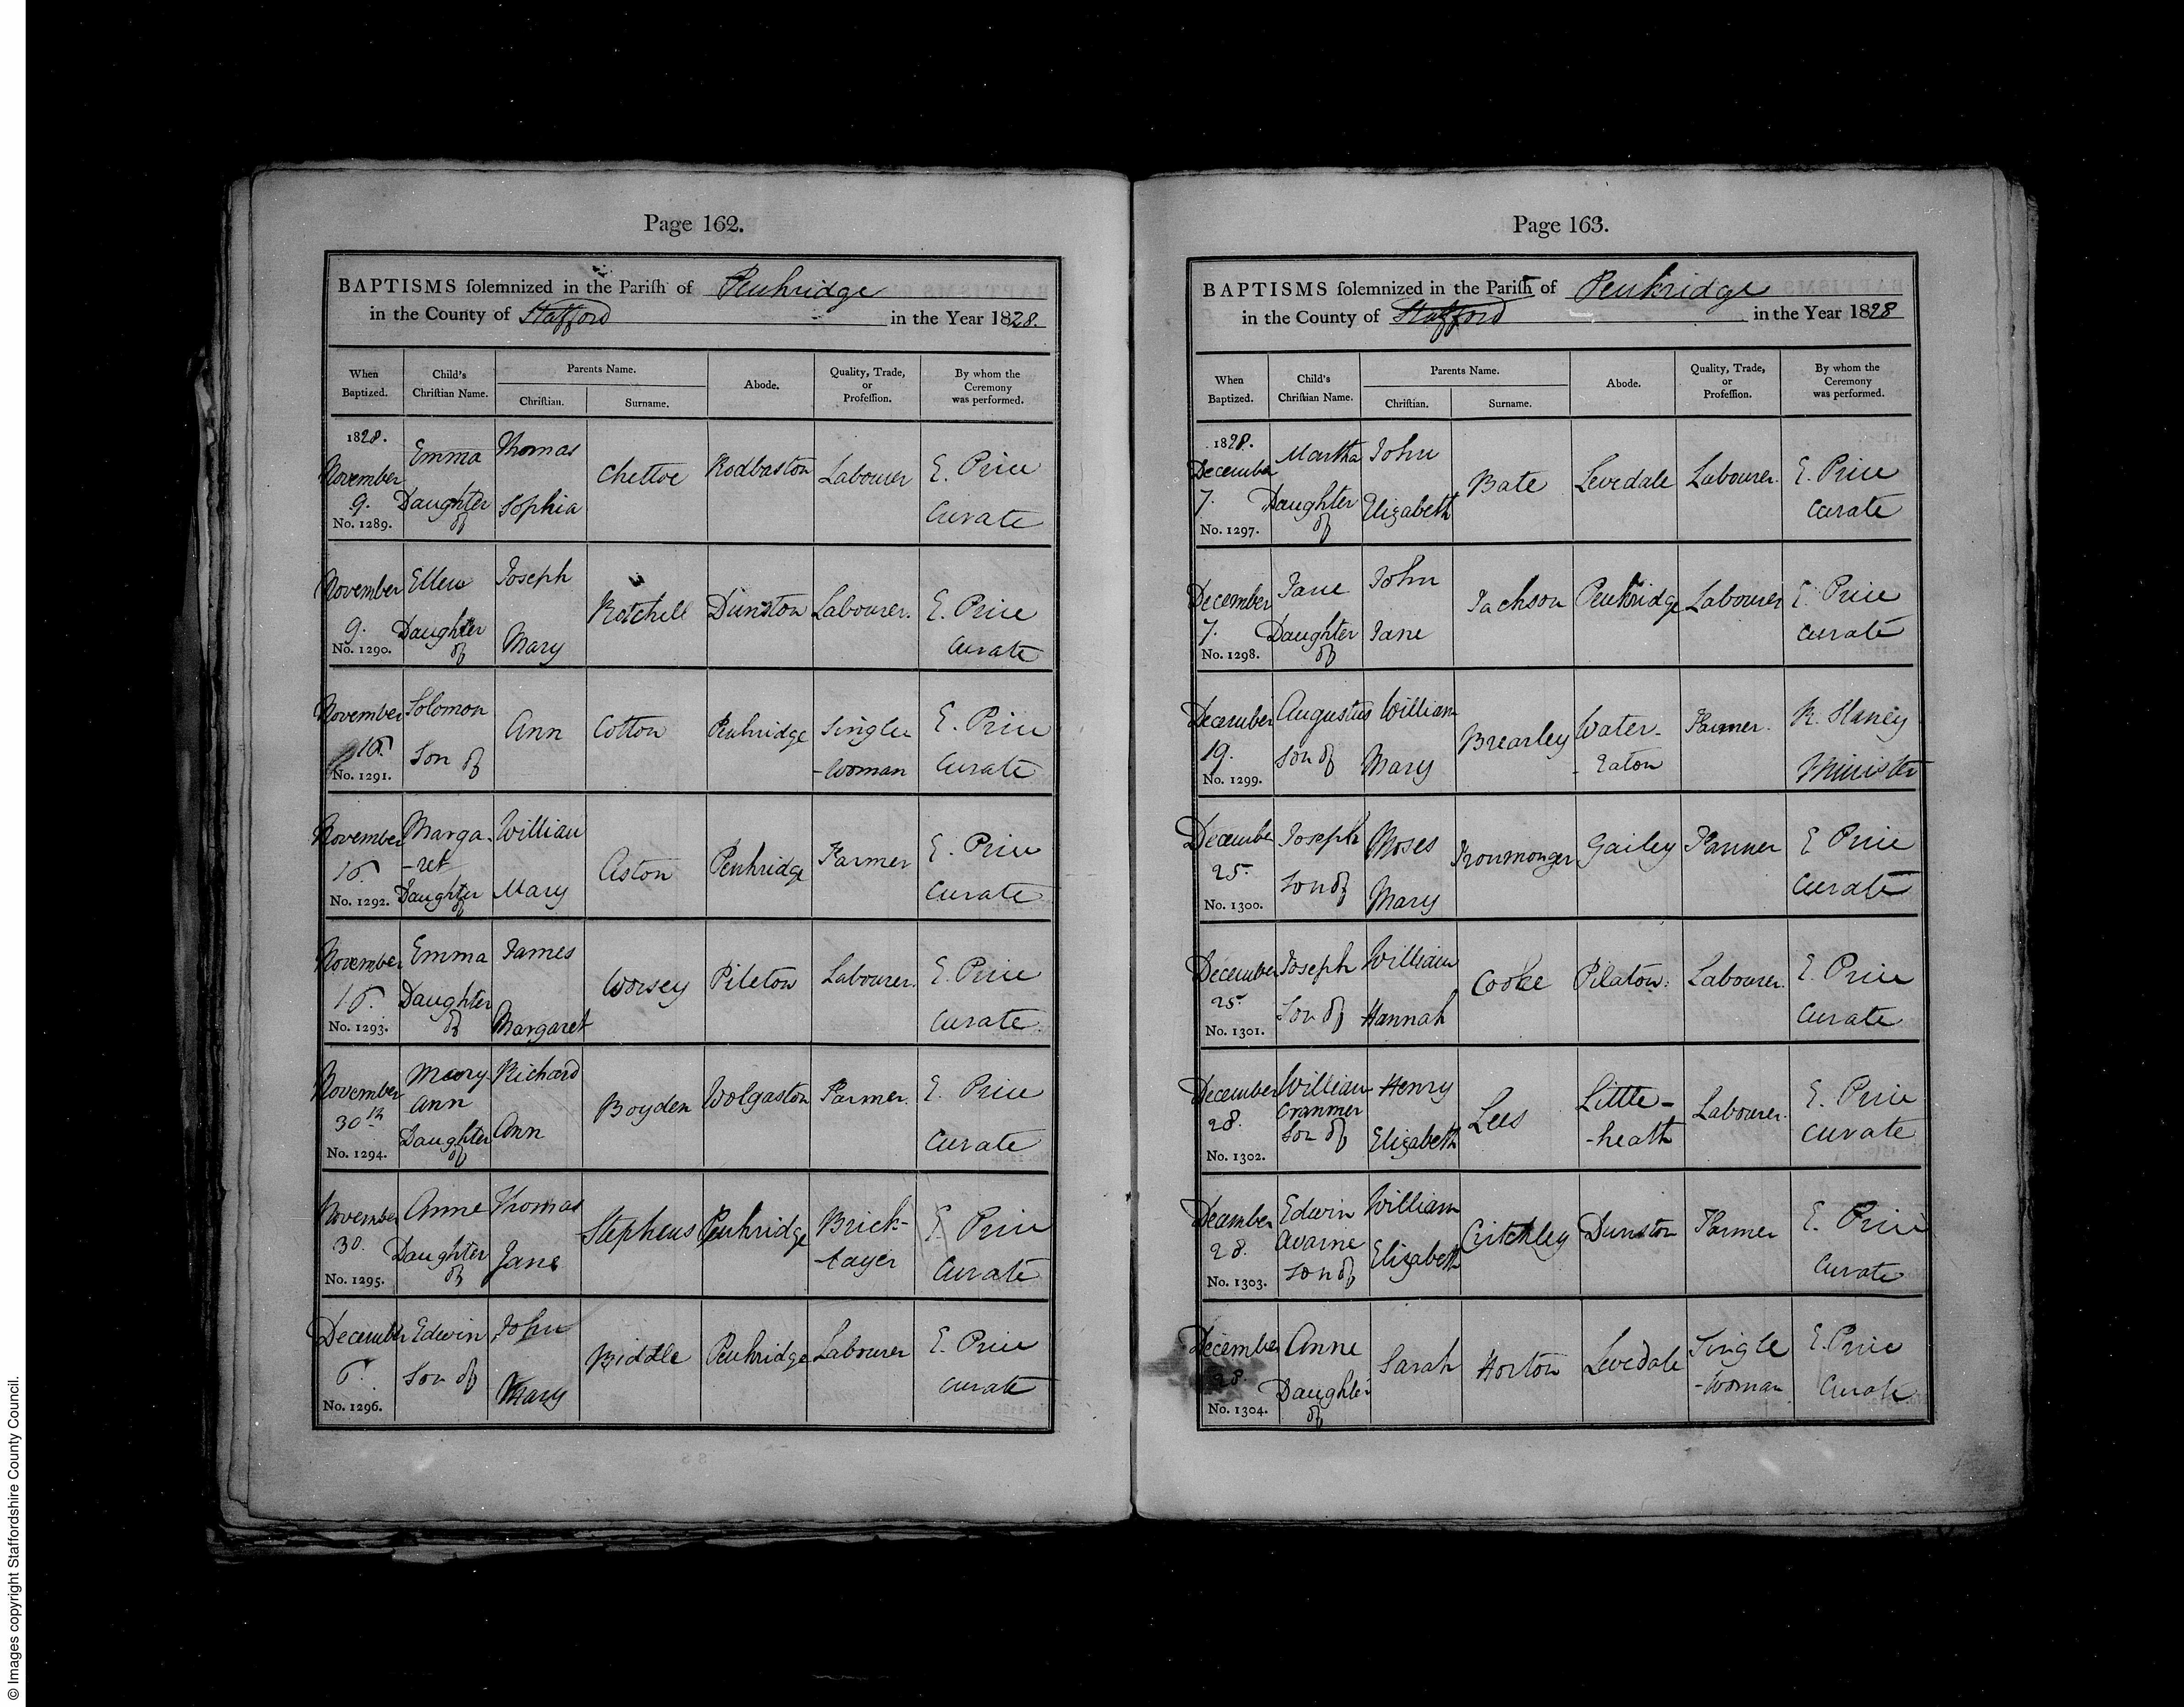 Page 162.
BAPTISMS solemnized in the Parish of Penkridge
in the County of Stafford in the Year 1828.
When Baptized. Child's Christian Name. Parents Name. Christian. Surname. Abode. Quality, Trade, or Profession. By whom the Ceremony was performed.
1828. November 9. No. 1289. Emma Daughter of Thomas Sophia Chettoe Rodbaston Labourer E. Price Curate
November 9. No. 1290. Ellen Daughter of Joseph Mary Rotchell Dunston Labourer. E. Price Curate
November 16. No. 1291. Solomon Son of Ann Cotton Penkridge Single -woman E. Price Curate
November 16. No. 1292. Marga -ret Daughter of William Mary Aston Penkridge Farmer E. Price Curate
November 16. No. 1293. Emma Daughter of James Margaret Worsey Pileton Labourer. E. Price Curate
November 30th No. 1294. Mary Ann Daughter of Richard Ann Boyden Wolgaston Farmer. E. Price Curate
November 30. No. 1295. Anne Daughter of Thomas Jane Stephens Penkridge Brick- -layer E. Price Curate
December 6. No. 1296. Edwin Son of John Mary Biddle Penkridge Labourer E. Price Curate
Page 163.
BAPTISMS solemnized in the Parish of Penkridge
in the County of Stafford in the Year 1828
When Baptized. Child's Christian Name. Parents Name. Christian. Surname. Abode. Quality, Trade, or Profession. By whom the Ceremony was performed.
1828. December 7. No. 1297. Martha Daughter of John Elizabeth Bate Levedale Labourer. E. Price Curate
December 7. No. 1298. Jane Daughter of John Jane Jackson Penkridge Labourer E. Price Curate
December 19. No. 1299. Augustus Son of William Mary Brearley Water- -Eaton Farmer. R. Slaney Minister
December 25. No. 1300. Joseph Son of Moses Mary Ironmonger Gailey Farmer E Price Curate
December 25. No. 1301. Joseph Son of William Hannah Cooke Pilaton. Labourer. E. Price Curate
December 28. No. 1302. William Cranmer Son of Henry Elizabeth Lees Little- -heath Labourer. E. Price Curate
December 28. No. 1303. Edwin Avarne Son of William Elizabeth Critchley Dunston Farmer E. Price Curate
December 28. No. 1304. Anne Daughter of Sarah Horton Levedale Single -woman E. Price Curate
© Images copyright Staffordshire County Council.